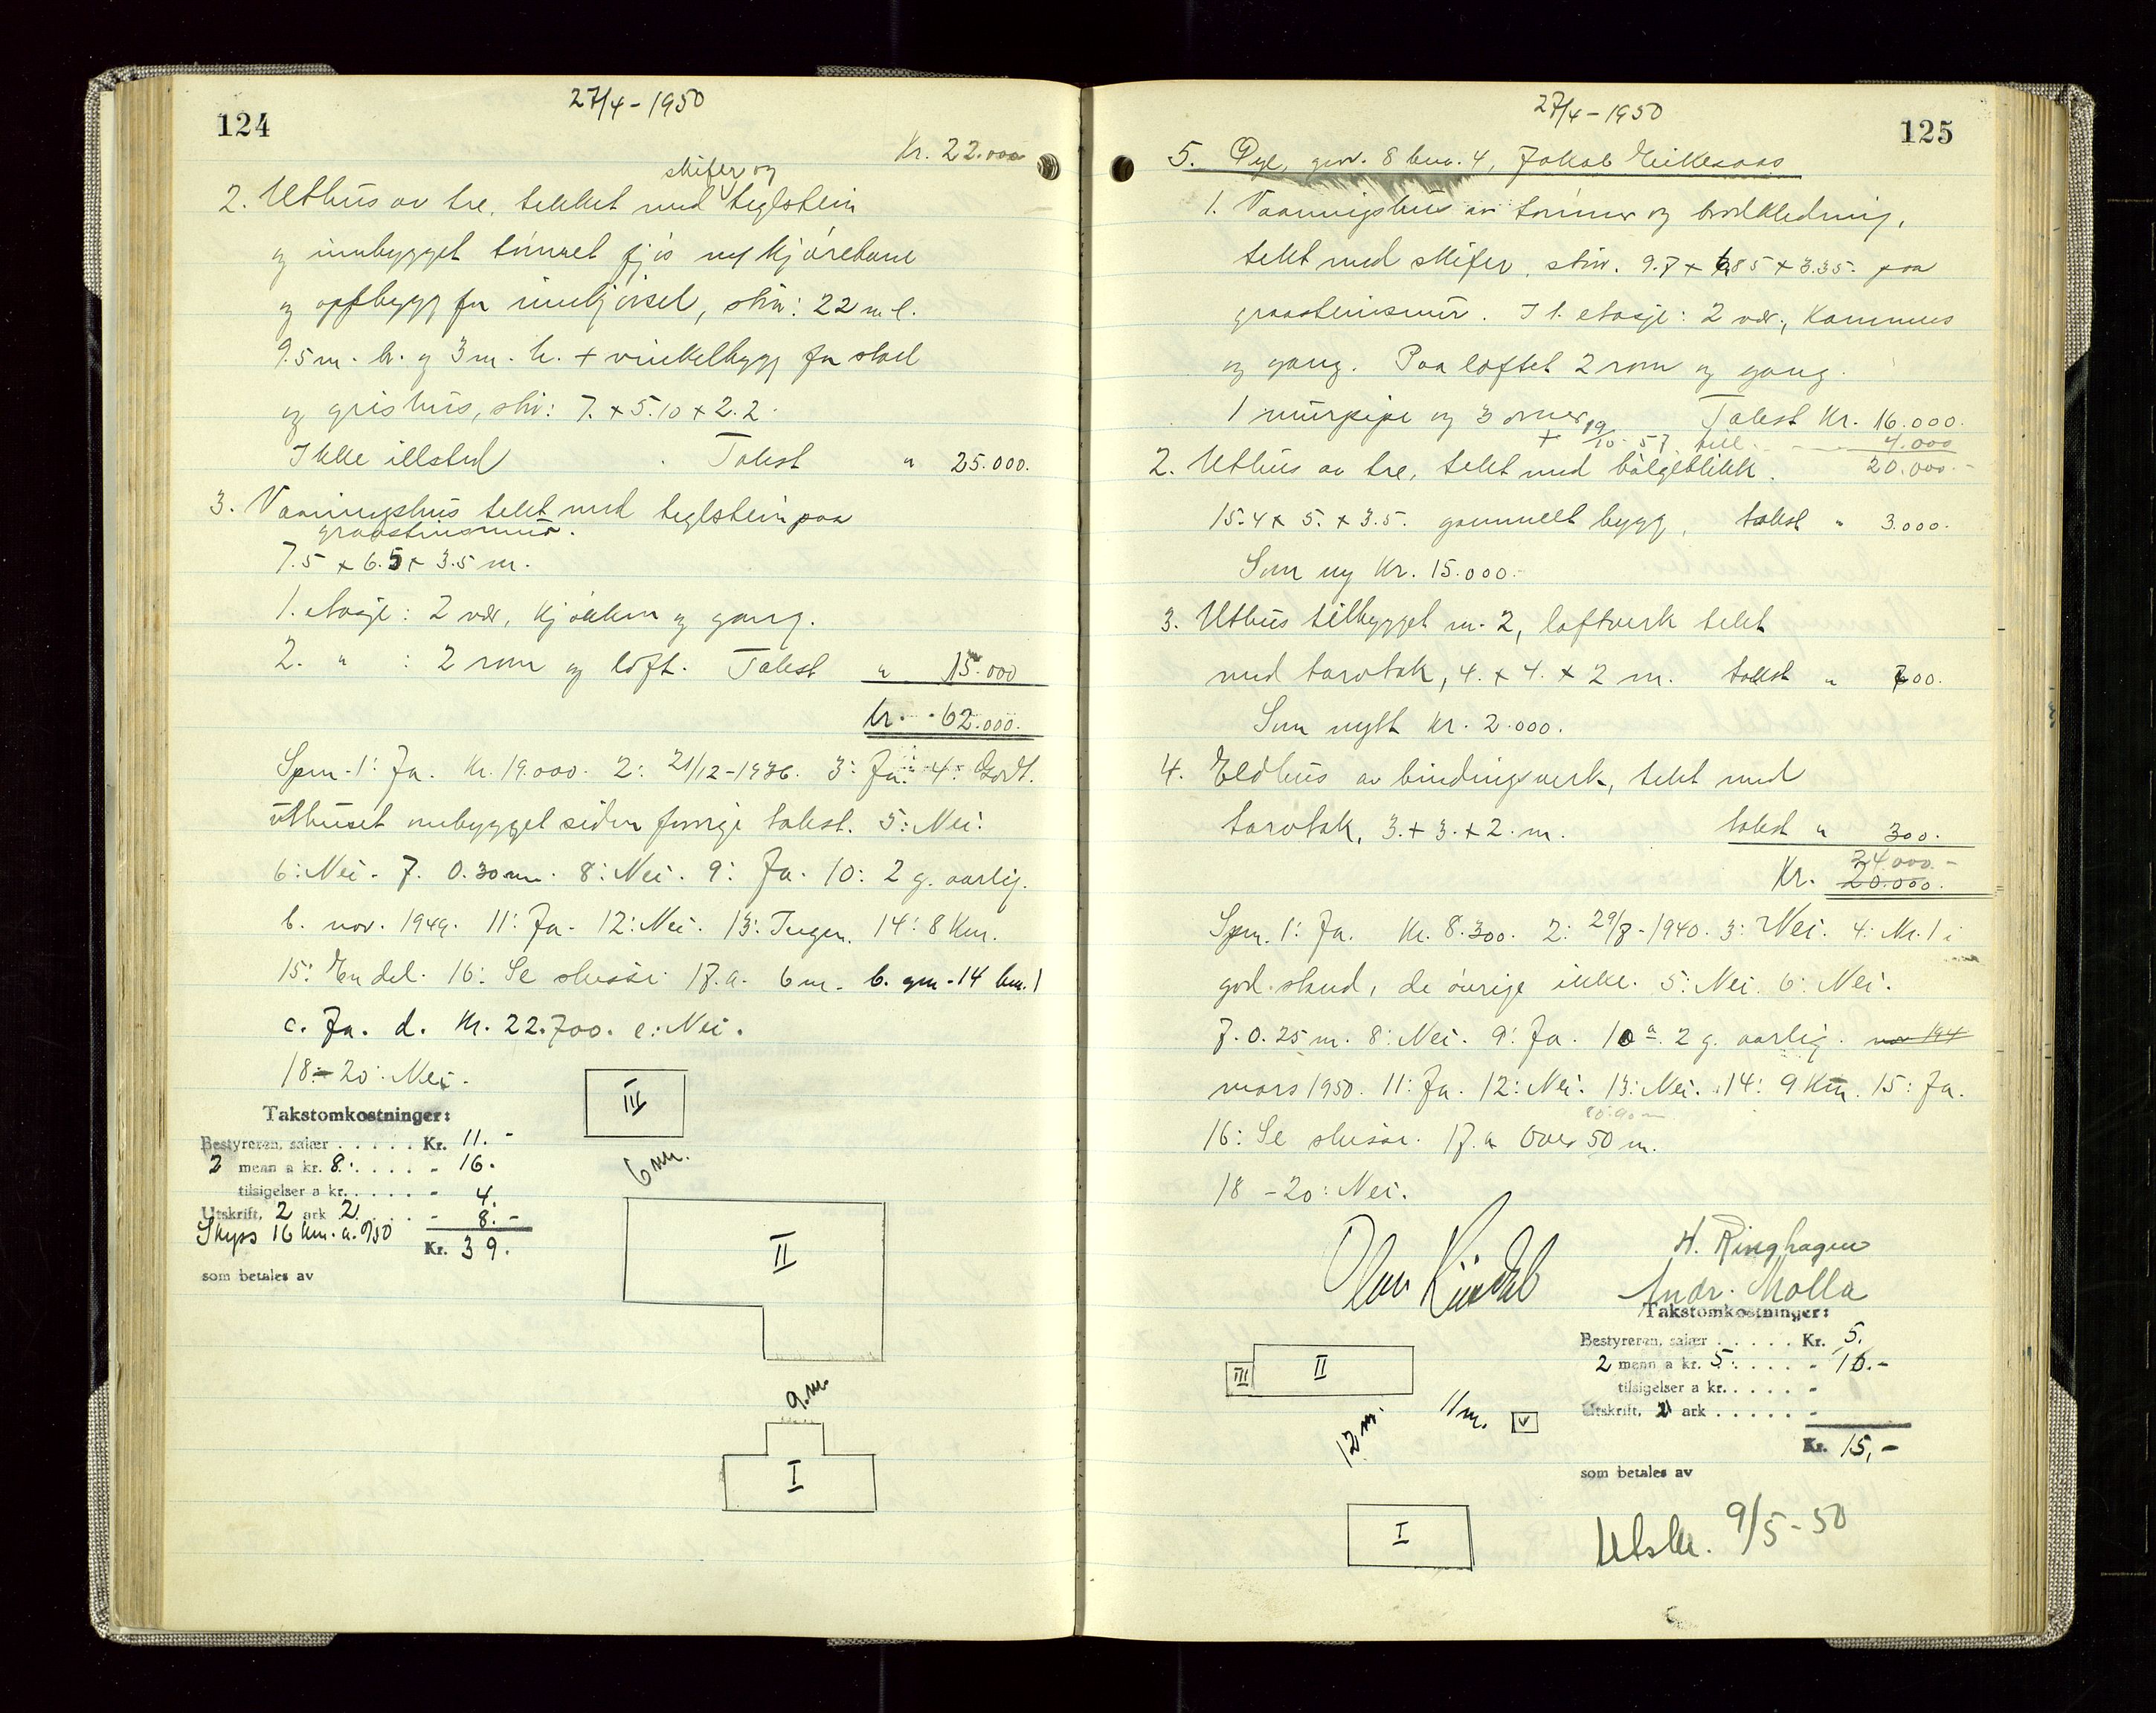 124
27/4 - 1950
Kr. 22.000
skifer og
2. Uthus av tre, tekket med teglstein
og innbygget tømret fjøs m/ kjørebane
og opfbygg for innkjørsel, str: 22 m l.
9.5 m. br. og 3 m. h. + vinkelbygg for stall
og grishus, str: 7. x 5.10 x 2.2.
Ikke illsted . Takst " 25.000.
3. Vaaningshus tekt med teglstein paa
graasteinsmur.
7.5 x 6.5 x 3.5 m.
1. etasje: 2 vær, kjøkken og gang.
2. " : 2 rom og loft. Takst " 15.000
kr. 62.000.
Spm. 1: Ja. Kr. 19.000. 2: 21/12-1936. 3: Ja. 4: Godt.
uthuset ombygget siden forrige takst. 5: Nei.
6: Nei. 7. 0.30 m. 8: Nei. 9: Ja. 10: 2 g. aarlig.
b. nov. 1949. 11: Ja. 12: Nei. 13: Ingen. 14: 8 Km.
15: En del. 16: Se skisse. 17.a. 6 m. b. gnr. 14 bnr. 1
c. Ja. d. Kr. 22.700. e: Nei.
18 - 20: Nei.
III
6 m.
Takstomkostninger:
Bestyreren, salær . . . . . Kr. 11.-
2 menn a kr. 8. . . . . - 16.
tilsigelser a kr. . . . . . - 4.
Utskrift, 2 ark 2 . . . . - 8.-
Skyss 16 km. a. 0/50
Kr. 39.
som betales av
II
9 m.
I
27/4 - 1950
125
5. Øye, gnr. 8 bnr. 4, Jakob Eikesaas
1. Vaaningshus av tømmer og bordkledning,
tekt med skifer, str. 9.7 x 6.85 x 3.35. paa
graasteinsmur. I 1. etasje: 2 vær, kammers
og gang. Paa loftet 2 rom og gang.
1 murpipe og 3 ovner, Takst Kr. 16.000.
+ 19/10-57 till. - - 4.000
20.000.-
2. Uthus av tre, tekt med bølgeblikk.
15.4 x 5. x 3.5. gammelt bygg, takst " 3.000.
Som ny Kr. 15.000.-
3. Uthus tilbygget nr. 2, laftverk tekt
med torvtak, 4. x 4. x 2 m. takst " 700.
Som nytt Kr. 2.000.
4. Eldhus av bindingsverk, tekt med
torvtak, 3. x 3. x 2. m. takst " 300.
24000.-
Kr. 20.000.
Spm. 1: Ja. Kr. 8.300. 2: 29/8-1940. 3: Nei. 4: Nr. 1 i
god stand, de øvrige ikke. 5: Nei. 6: Nei.
7. 0.25 m. 8: Nei. 9: Ja. 10 a. 2 g. aarlig. nov 194
mars 1950. 11: Ja. 12: Nei. 13: Nei. 14: 9 Km. 15: Ja.
16: Se skisse. 17.a Over 50 m.
18 - 20: Nei.
H. Ringhagen
Andr. Molla
III
II
12 m.
11 m.
V
I
Takstomkostninger:
Bestyreren, salær . . . . . Kr. 5.
2 menn a kr. 5. . . . . - 10.-
tilsigelser a kr. . . . . . -
Utskrift, ark . . . . . -
Kr. 15,-
som betales av
Utskr. 9/5-50